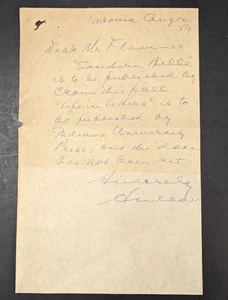 Aug 12
57
Dear Mr. Flammer
"Southern Belle"
is to be published by
Crown this fall.
"Life in Letters" is to
be published by
Indiana University
Press, but the date
has not been set
Sincerely